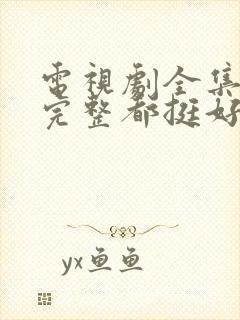 電視劇全集
完整都挺好
yx鱼鱼